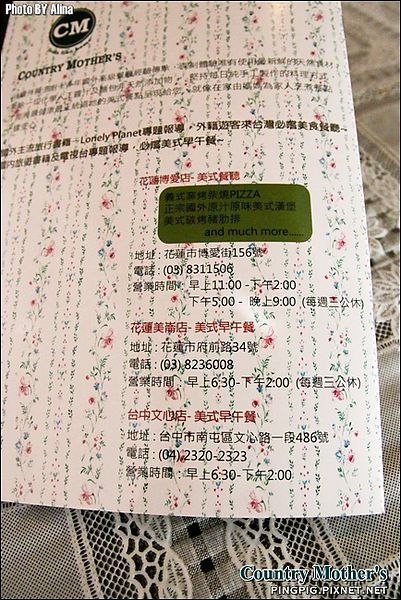 Photo BY Alina
CM
COUNTRY MOTHER'S
堅持每日純手工製作的料理方式
就像在家由媽媽為家人烹煮餐點
Lonely Planet專題報導，外籍遊客來台灣必嚐美食餐廳~
國內旅遊書籍及電視台專題報導，必嚐美式早午餐~
花蓮博愛店- 美式餐廳
義式窯烤柴燒PIZZA
正宗國外原汁原味美式漢堡
美式碳烤豬肋排
and much more......
地址 : 花蓮市博愛街156號
電話 : (03) 8311506
營業時間 : 早上11:00 -下午2:00
下午5:00 - 晚上9:00 (每週三公休)
花蓮美崙店- 美式早午餐
地址 : 花蓮市府前路34號
電話 : (03) 8236008
營業時間 : 早上6:30-下午2:00 (每週三公休)
台中文心店- 美式早午餐
地址 : 台中市南屯區文心路一段486號
電話 : (04) 2320-2323
營業時間 : 早上6:30-下午2:00
Country Mother's
PINGPIG.PIXNET.NET